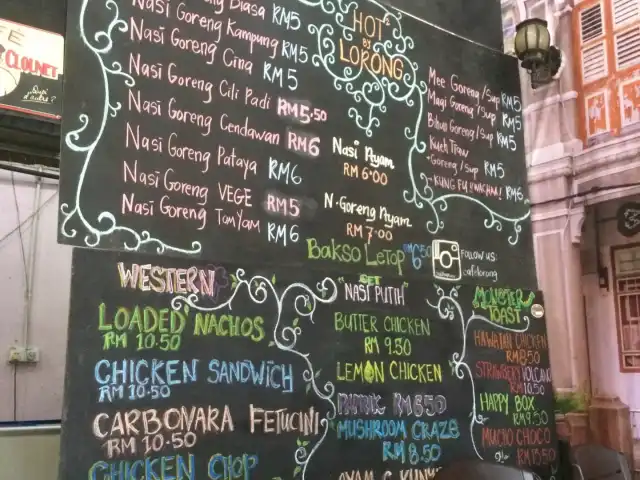 Biasa RM5
Nasi Goreng Kampung RM5
Nasi Goreng Cina RM5
Nasi Goreng Cili Padi RM5.50
Nasi Goreng Cendawan RM6
Nasi Goreng Pataya RM6
Nasi Goreng VEGE RM5
Nasi Goreng TomYam RM6
HOT
BY
LORONG
Nasi Ayam
RM 6.00
N.Goreng Ayam
RM 7.00
Bakso LeTop 6.50
Mee Goreng/Sup RM5
Magi Goreng/Sup RM5
Bihun Goreng/Sup RM5
Kueh Tiaw
-Goreng/Sup RM5
-KUNG FU RM6
Follow us:
cafelorong
WESTERN
LOADED NACHOS
RM 10.50
CHICKEN SANDWICH
RM 10.50
CARBONARA FETUCINI
RM 10.50
CHICKEN CHOP
SET
"NASI PUTIH"
BUTTER CHICKEN
RM 9.50
LEMON CHICKEN
PAPRIK RM6.50
MUSHROOM CRAZE
RM 8.50
AYAM
MONSTER
TOAST
HAWAIIAN CHICKEN
RM8.50
STRAWBERY VOLCANO
RM10.50
HAPPY BOX
RM9.50
MUCHO CHOCO
RM13.50